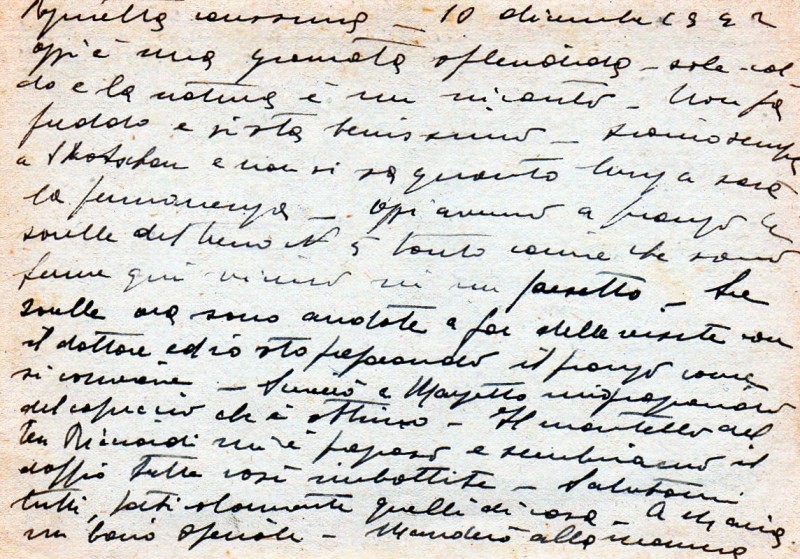 carissima — 10 dicembre 1942
oggi è una giornata splendida — sole cal-
do e la natura è un incanto — Non fa
freddo e si sta benissimo — siamo sempre
a e non si sa quanto lunga sarà
la permanenza — oggi avremo a pranzo le
sorelle del treno N 5 tanto carine che sono
ferme qui vicino in un paesetto — Le
sorelle ora sono andate a far delle visite con
il dottore ed io sto preparando il pranzo come
si conviene — e mi preparano
del che è ottimo — Il mantello del
ten Ricciardi mi è e sembriamo il
doppio tutte così imbottite — Salutami
tutti, particolarmente quelli di casa — A Maria
un bacio speciale — Manderò alla mamma